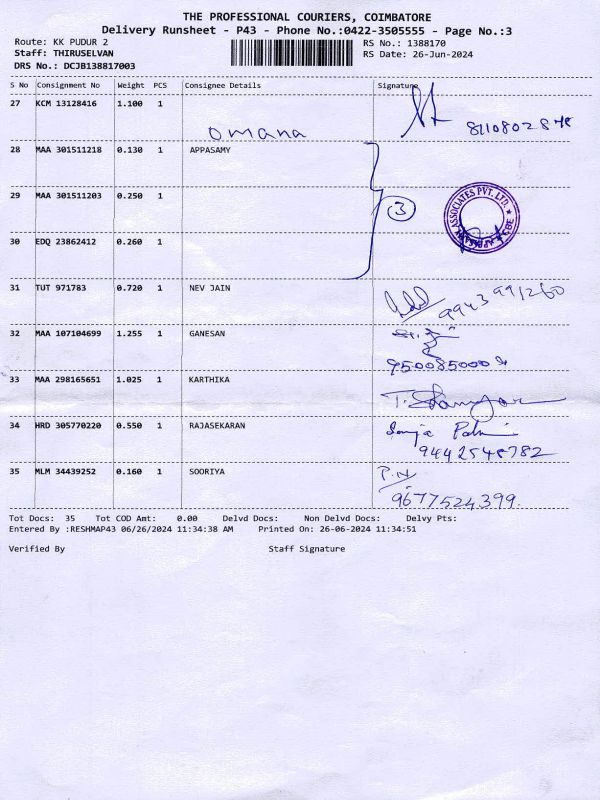 THE PROFESSIONAL COURIERS, COIMBATORE
Delivery Runsheet - P43 - Phone No.:0422-3505555 - Page No.:3
Route: KK PUDUR 2
RS No.: 1388170
Staff: THIRUSELVAN
RS Date: 26-Jun-2024
DRS No.: DCJB138817003
S No Consignment No Weight PCS Consignee Details Signature
27 KCM 13128416 1.100 1
omana
28 MAA 301511218 0.130 1 APPASAMY
29 MAA 301511203 0.250 1
3
ASSOCIATES PVT. LTD.
30 EDQ 23862412 0.260 1
31 TUT 971783 0.720 1 NEV JAIN
9943 991260
32 MAA 107104699 1.255 1 GANESAN
33 MAA 298165651 1.025 1 KARTHIKA
34 HRD 305770220 0.550 1 RAJASEKARAN
9442548782
35 MLM 34439252 0.160 1 SOORIYA
P.N
9677524399
Tot Docs: 35 Tot COD Amt: 0.00 Delvd Docs: Non Delvd Docs: Delvy Pts:
Entered By :RESHMAP43 06/26/2024 11:34:38 AM Printed On: 26-06-2024 11:34:51
Verified By Staff Signature